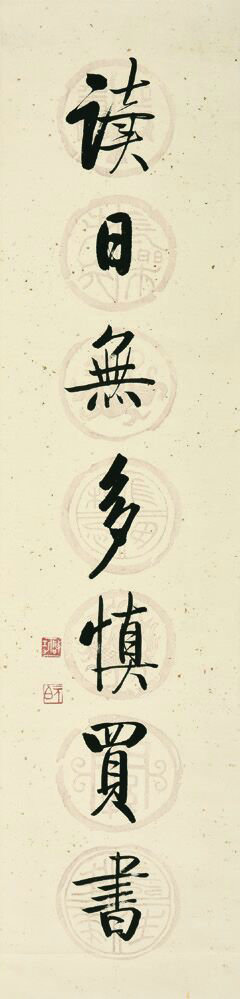 读日無多慎買書